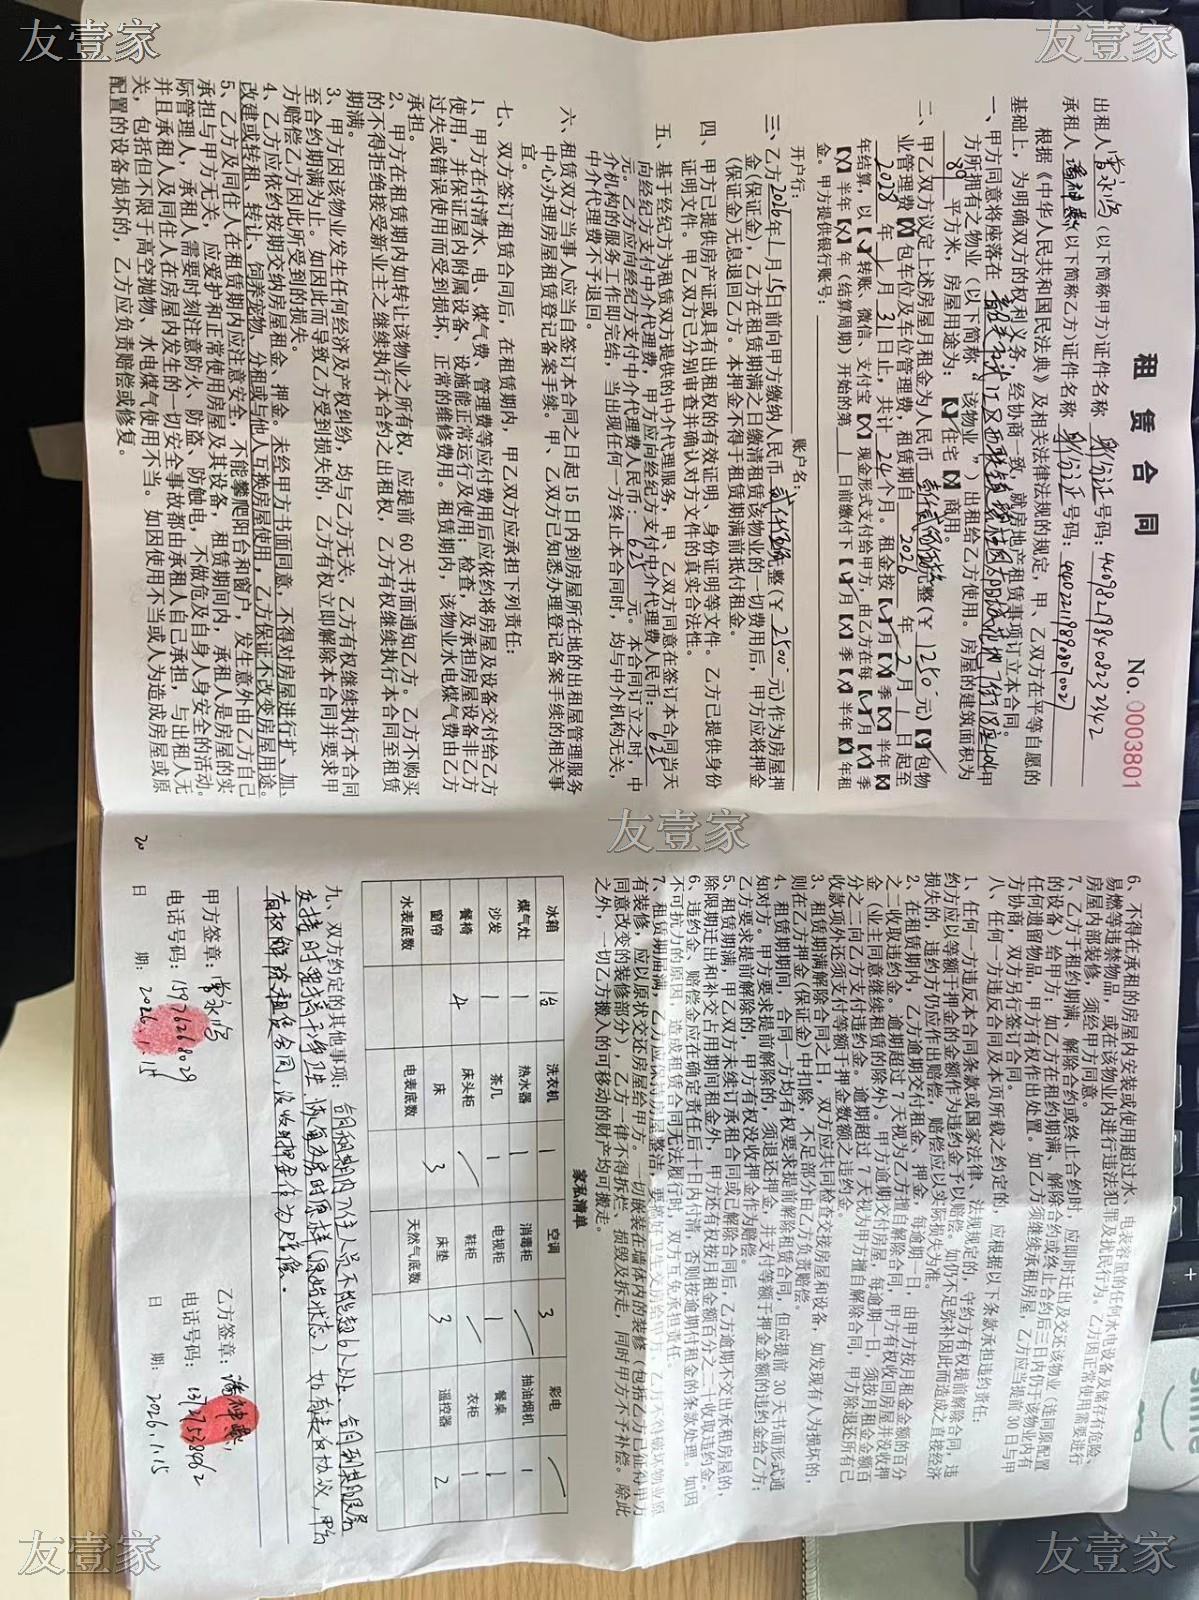 租赁合同
No. 0003801
出租人曾永鸣(以下简称甲方)证件名称 身份证 号码:
承租人 (以下简称乙方)证件名称 身份证 号码:
根据《中华人民共和国民法典》及相关法律法规的规定,甲、乙双方在平等自愿的
基础上,为明确双方的权利义务,经协商一致,就房地产租赁事项订立本合同。
一、甲方同意将座落在 甲
方所拥有之物业(以下简称“该物业”)出租给乙方使用。房屋的建筑面积为
88 平方米,房屋用途为:【√】住宅【】商用。
二、甲乙双方议定上述房屋月租金为人民币 壹仟贰佰 元整(¥ 元)【√】包物
业管理费【】包车位及车位管理费,租赁期自 2026 年 2 月 1 日起至
2028 年 1 月 31 日止,共计 24 个月。租金按【√】月【】季【】半年【】
年结算,以【√】转账、微信、支付宝【】现金形式支付给甲方,由乙方在每【√】月【】季
【】半年【】年(结算周期)开始的第 1 日前缴付下【√】月【】季【】半年【】年租
金。甲方提供银行账号:
开户行: 账户名:
三、乙方2026年1月15日前向甲方缴纳人民币 元整(¥ 元)作为房屋押
金(保证金),乙方在租赁期满之日缴清租赁该物业的一切费用后,甲方应将押金
(保证金)无息退回乙方。本押金不得于租赁期满前抵付租金。
四、甲方已提供房产证或具有出租权的有效证明、身份证明等文件。乙方已提供身份
证明文件。甲乙双方已分别审查并确认对方文件的真实合法性。
五、基于经纪方为租赁双方提供的中介代理服务,甲、乙双方同意在签订本合同当天
向经纪方支付中介代理费,甲方应向经纪方支付中介代理费人民币: 625
元。乙方应向经纪方支付中介代理费人民币: 625 元。本合同订立之时,中
介机构的服务工作即完结,当出现任何一方终止本合同时,均与中介机构无关,
中介代理费不予退回。
六、租赁双方当事人应当自签订本合同之日起15日内到房屋所在地的出租屋管理服务
中心办理房屋租赁登记备案手续。甲、乙双方已知悉办理登记备案手续的相关事
宜。
七、双方签订租赁合同后,在租赁期内,甲乙双方应承担下列责任:
1、甲方在付清水、电、煤气费、管理费等应付费用后应依约将房屋及设备交付给乙方
使用,并保证屋内附属设备、设施能正常运行及使用;检查,及承担房屋设备非乙方
过失或错误使用而受到损坏,正常的维修费用。租赁期内,该物业水电煤气费由乙方
承担。
2、甲方在租赁期内如转让该物业之所有权,应提前60天书面通知乙方。乙方不购买
的不得拒绝接受新业主之继续执行本合约之出租权,乙方有权继续执行本合同至租赁
期满。
3、甲方因该物业发生任何经济及产权纠纷,均与乙方无关,乙方有权继续执行本合同
至合约期满为止。如因此而导致乙方受到损失的,乙方有权立即解除本合同并要求甲
方赔偿乙方因此所受到的损失。
4、乙方应依约按期交纳房屋租金、押金。未经甲方书面同意,不得对房屋进行扩、加、
改建或转租、转让、饲养宠物、分租或与他人互换房屋使用,乙方保证不改变房屋用途。
5、乙方及同住人在租赁期内应注意安全,不能攀爬阳台和窗户,发生意外由乙方自己
承担与甲方无关,应爱护和正常使用房屋及其设备,租赁期间内,承租人是房屋的实
际管理人,承租人需要时刻注意防火、防盗、防触电,不做危及自身人身安全的活动。
并且承租人及同住人在房屋内发生的一切安全事故都由承租人自己承担,与出租人无
关,包括但不限于高空抛物、水电煤气使用不当。如因使用不当或人为造成房屋或原
配置的设备损坏的,乙方应负责赔偿或修复。
6、不得在承租的房屋内安装或使用超过水、电表容量的任何水电设备及储存有危险、
易燃等违禁物品,或在该物业内进行违法犯罪及扰民行为。乙方因正常使用需要进行
房屋内部装修,须经甲方同意。
7、乙方于租约期满、解除合约或终止合约时,应即时迁出及交还该物业(连同原配置
的设备)给甲方;如乙方在租约期满、解除合约或终止合约后三日内仍于该物业内有
任何遗留物品,甲方有权作出处置。如乙方须继续承租房屋,乙方应当提前30日与甲
方协商,双方另行签订合同。
八、任何一方违反合同及本页所载之约定的,应根据以下条款承担违约责任:
1、任何一方违反本合同条款或国家法律、法规规定的,守约方有权提前解除合同,违
约方应以等额于押金的金额作为违约金予以赔偿。如仍不足弥补因此而造成之直接经济
损失的,违约方仍应作出赔偿,赔偿应以实际损失为准。
2、在租赁期内,乙方逾期交付租金、押金,每逾期一日,由甲方按月租金金额的百分
之二收取违约金。逾期超过7天视为乙方擅自解除合同,甲方有权收回房屋并没收押
金(业主同意继续租赁的除外)。甲方逾期交付房屋,每逾期一日,须按月租金金额百
分之二向乙方支付违约金。逾期超过7天视为甲方擅自解除合同,甲方除退还所有已
收款项外还须支付等额于押金数额之违约金。
3、租赁期满解除合同之日,双方应共同检查交接房屋和设备,如发现有人为损坏的,
则在乙方押金(保证金)中扣除,不足部分由乙方负责赔偿。
4、租赁期期间,合同一方均有权要求提前解除租赁合同,但应提前30天书面形式通
知对方。甲方要求提前解除的,须退还押金,并支付等额于押金金额的违约金给乙方;
乙方要求提前解除的,甲方有权没收押金作为赔偿。
5、租赁期满,甲乙双方未续订承租合同或已解除合同后,乙方逾期不交出承租房屋的,
除限期迁出和补交占用期间租金外,甲方还有权按月租金额百分之二十收取违约金。
6、违约金、赔偿金应在确定责任后十日内付清,否则按逾期付租金的条款处理。如因
不可抗力的原因,造成租赁合同无法履行时,双方互免所承担责任。
7、租赁期届满,乙方应保持房屋整洁,要搞好卫生交房给甲方,乙方不得破坏物业原
有装修,应以原状交还房屋给甲方。一切嵌装在墙体内的装修(包括乙方已征得甲方
同意改变的装修部分),乙方一律不得拆烂、损毁及拆走,同时甲方不予补偿。除此
之外,一切乙方搬入的可移动的财产均可搬走。
家私清单
冰箱 1台 洗衣机 1 空调 3 彩电
煤气灶 1 热水器 1 消毒柜 抽油烟机 1
沙发 1 茶几 1 电视柜 1 餐桌 1
餐椅 4 床头柜 鞋柜 衣柜 1
窗帘 床 3 床垫 3 遥控器 2
水表底数 电表底数 天然气底数
九、双方约定的其他事项: 合同租期内入住人员不能超6人以上,合同到期退房
交接时要搞干净卫生,恢复交房时原样(原始状态),如有违反协议,甲方
有权解除租赁合同,没收押金作为赔偿。
甲方签章:曾永鸣
电话号码:15976268029
日 期:2026.1.15
乙方签章:
电话号码:
日 期:2026.1.15
友壹家
友壹家
友壹家
友壹家
友壹家